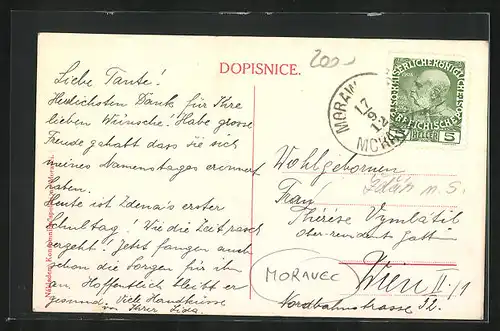 DOPISNICE.
200.-
Liebe Tante!
Herzlichsten Dank für Ihre
lieben Wünsche! Habe grosse
Freude gehabt dass sie sich
meines Namenstages erinnert
haben.
Heute ist Zdena's erster
Schultag! Wie die Zeit rasch
vergeht! Jetzt fangen auch
schon die Sorgen für ihn
an. Hoffentlich bleibt er
gesund. Viele Handküsse
von Ihrer Lida.
MORAW
17
9
12
5
HELLER
Wohlgebornen
Frau
Thérèse Vymlátil
Wien II./1
Nordbahnstrasse 32.
MORAVEC